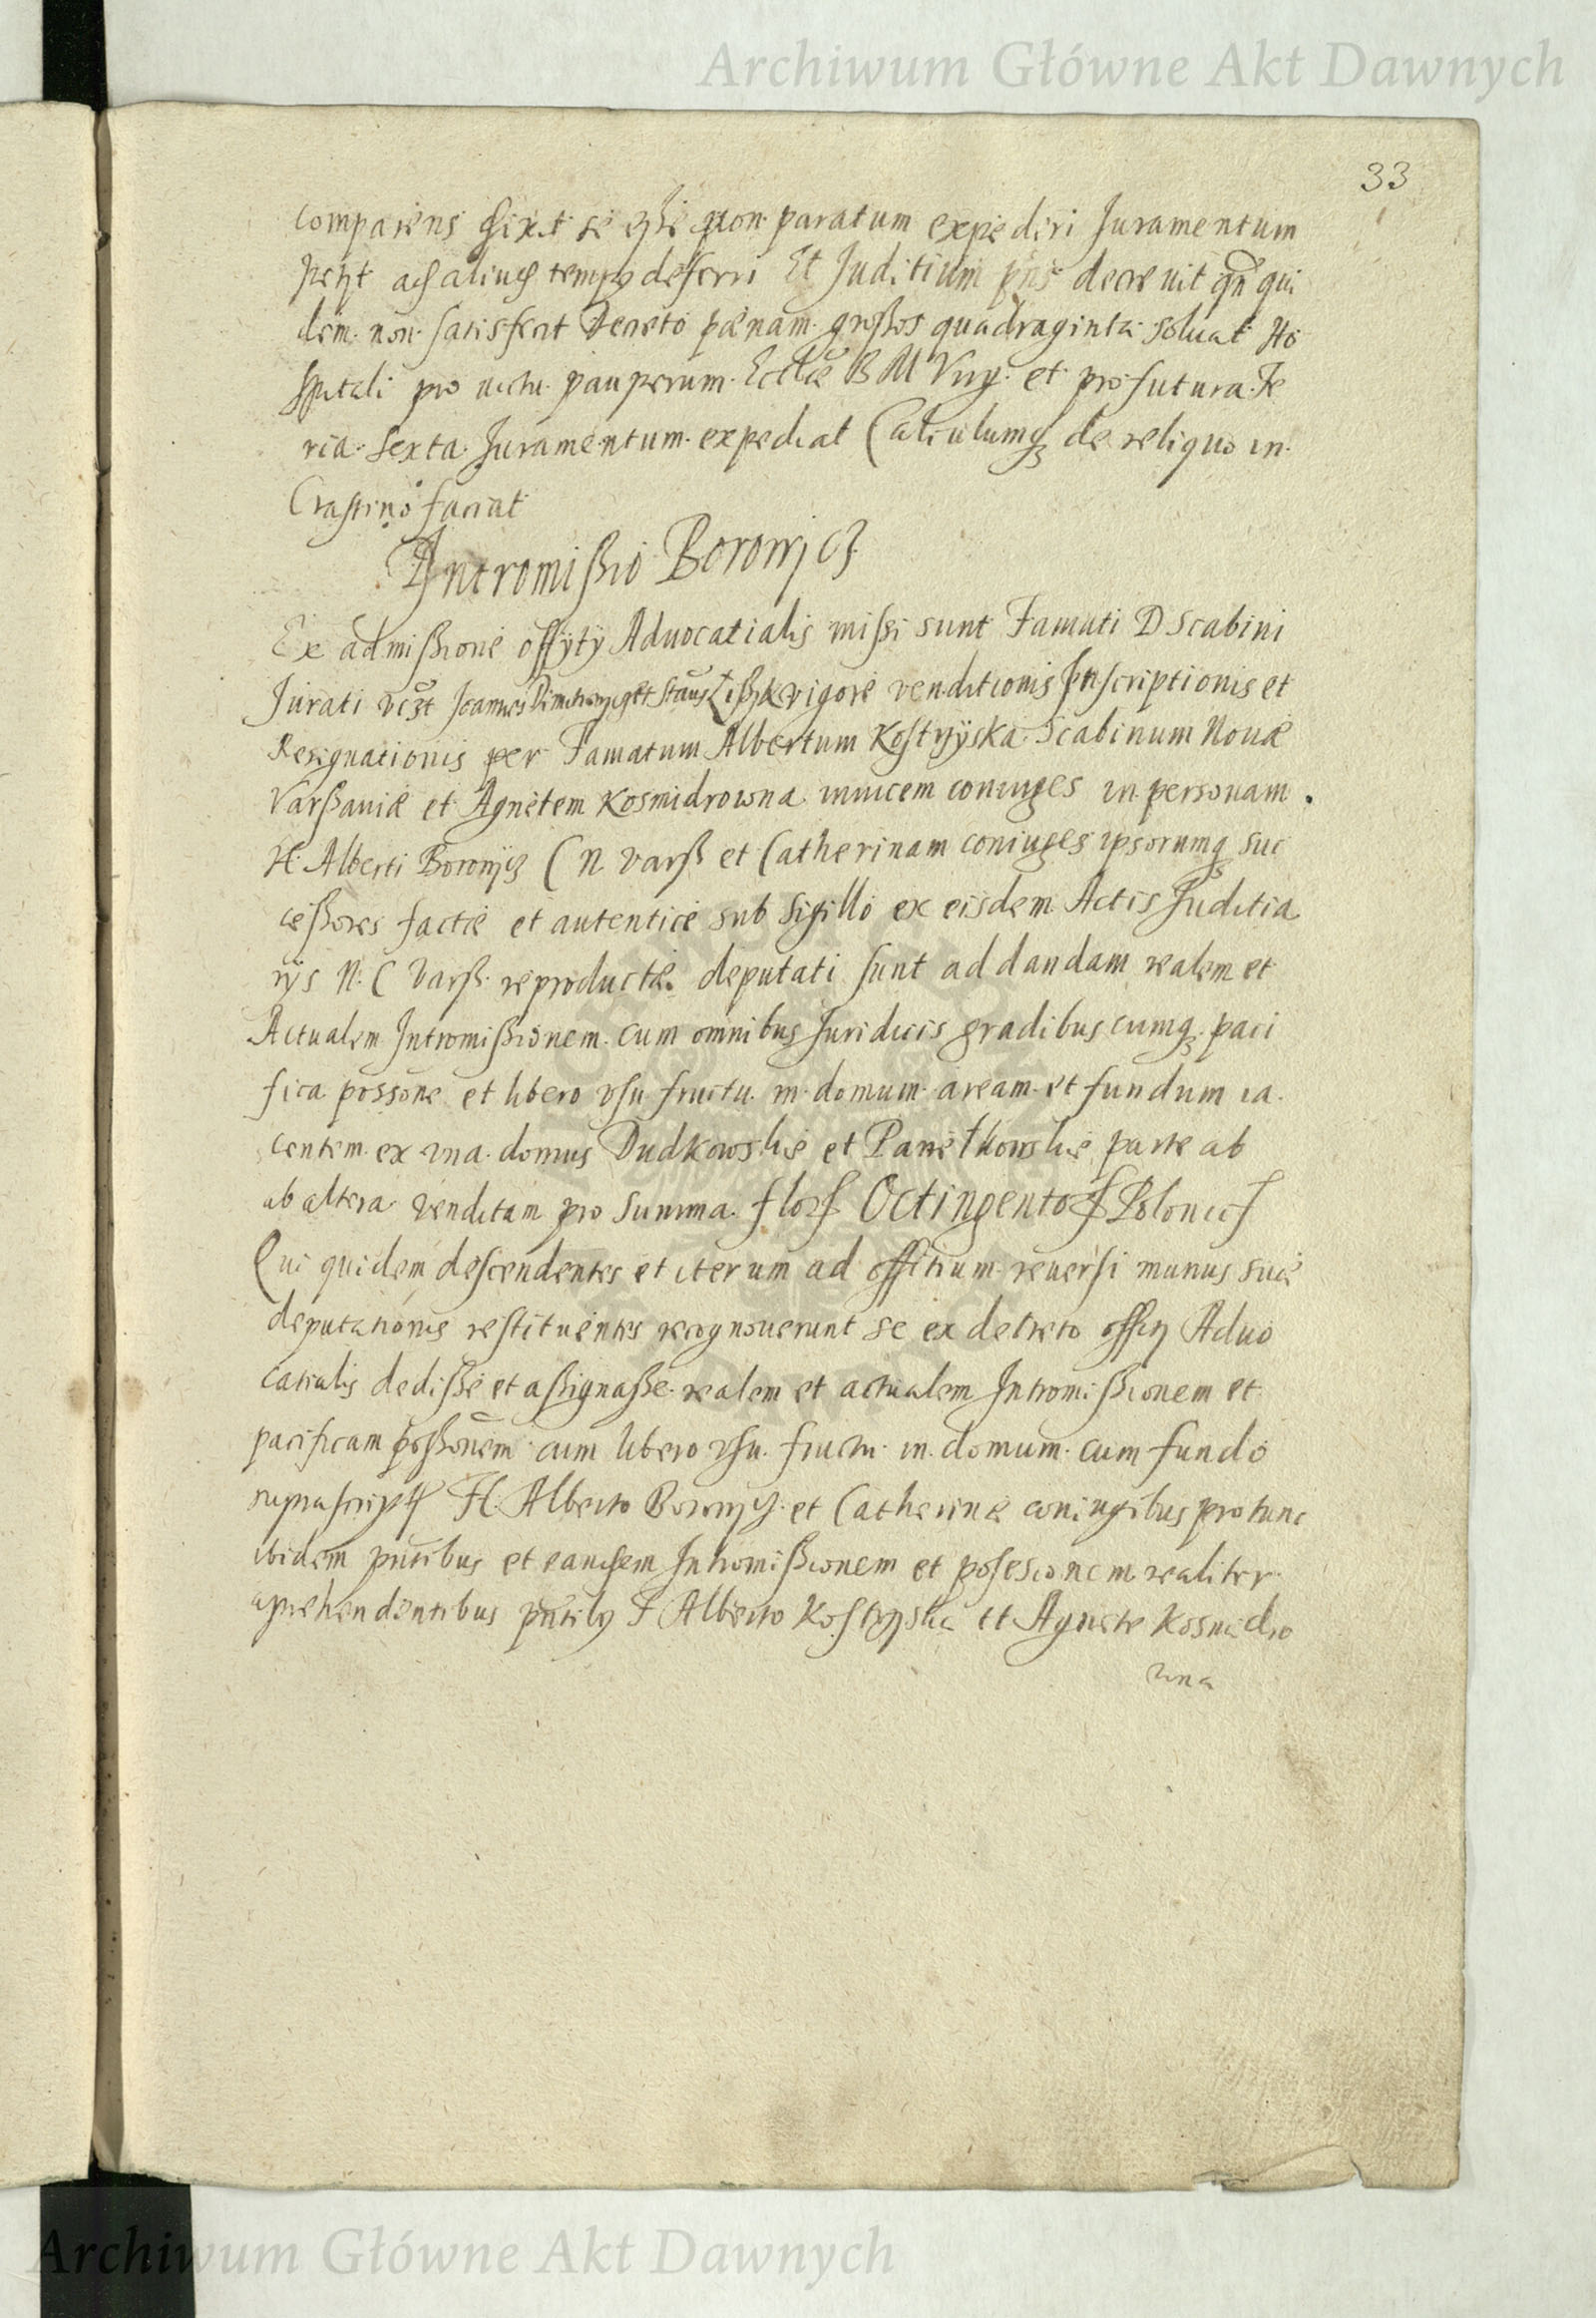 Archiwum Główne Akt Dawnych
33
comparens dixit se esse non paratum expediri Juramentum
petyt ad aliud tempus deferri Et Juditium pns decrevit qn qui
dem non satisfecit Decreto pænam großos quadraginta soluat Ho
spitali pro victu pauperum Eccliæ B M Virg et pro futura Fe
ria sexta Juramentum expediat Calculumq de reliquo in
Crastino faciat
Intromißio Borowicz
Ex admißione offity Aduocatialis mißi sunt Famati D Scabini
Jurati vczt Joannes et Staus vigore venditionis Inscriptionis et
Resignationis per Famatum Albertum Kostryska Scabinum Nouæ
Varßaviæ et Agnetem Kosmidrowna inuicem coniuges in personam
H Alberti Borowicz C N Varß et Catherinam coniuges ipsorumq suc
ceßores factæ et autenticè sub Sigillo ex eisdem Actis Juditia
rys N C Varß reproductæ deputati sunt ad dandam realem et
Actualem Intromißionem cum omnibus Juridicis gradibus cumq paci
fica possone et libero vsu fructu in domum aream et fundum ia
centem ex vna domus Dudkowskie et parte ab
ab altera venditam pro summa flor Octingentos Polonic
Qui quidem descendentes et iterum ad offitium reuersi munus suæ
deputationis restituentes recognouerunt se ex decreto officy Aduo
catialis dediße et aßignaße realem et actualem Intromißionem et
pacificam poßonem cum libero vsu fructu in domum cum fundo
suprascript H Alberto Borowicz et Catherinæ coniugibus pro tunc
ibidem pntibus et eandem Intromißionem et posesionem realiter
aprehendentibus pntibus F Alberto Kostryska et Agnete Kosmidro
wna
Archiwum Główne Akt Dawnych